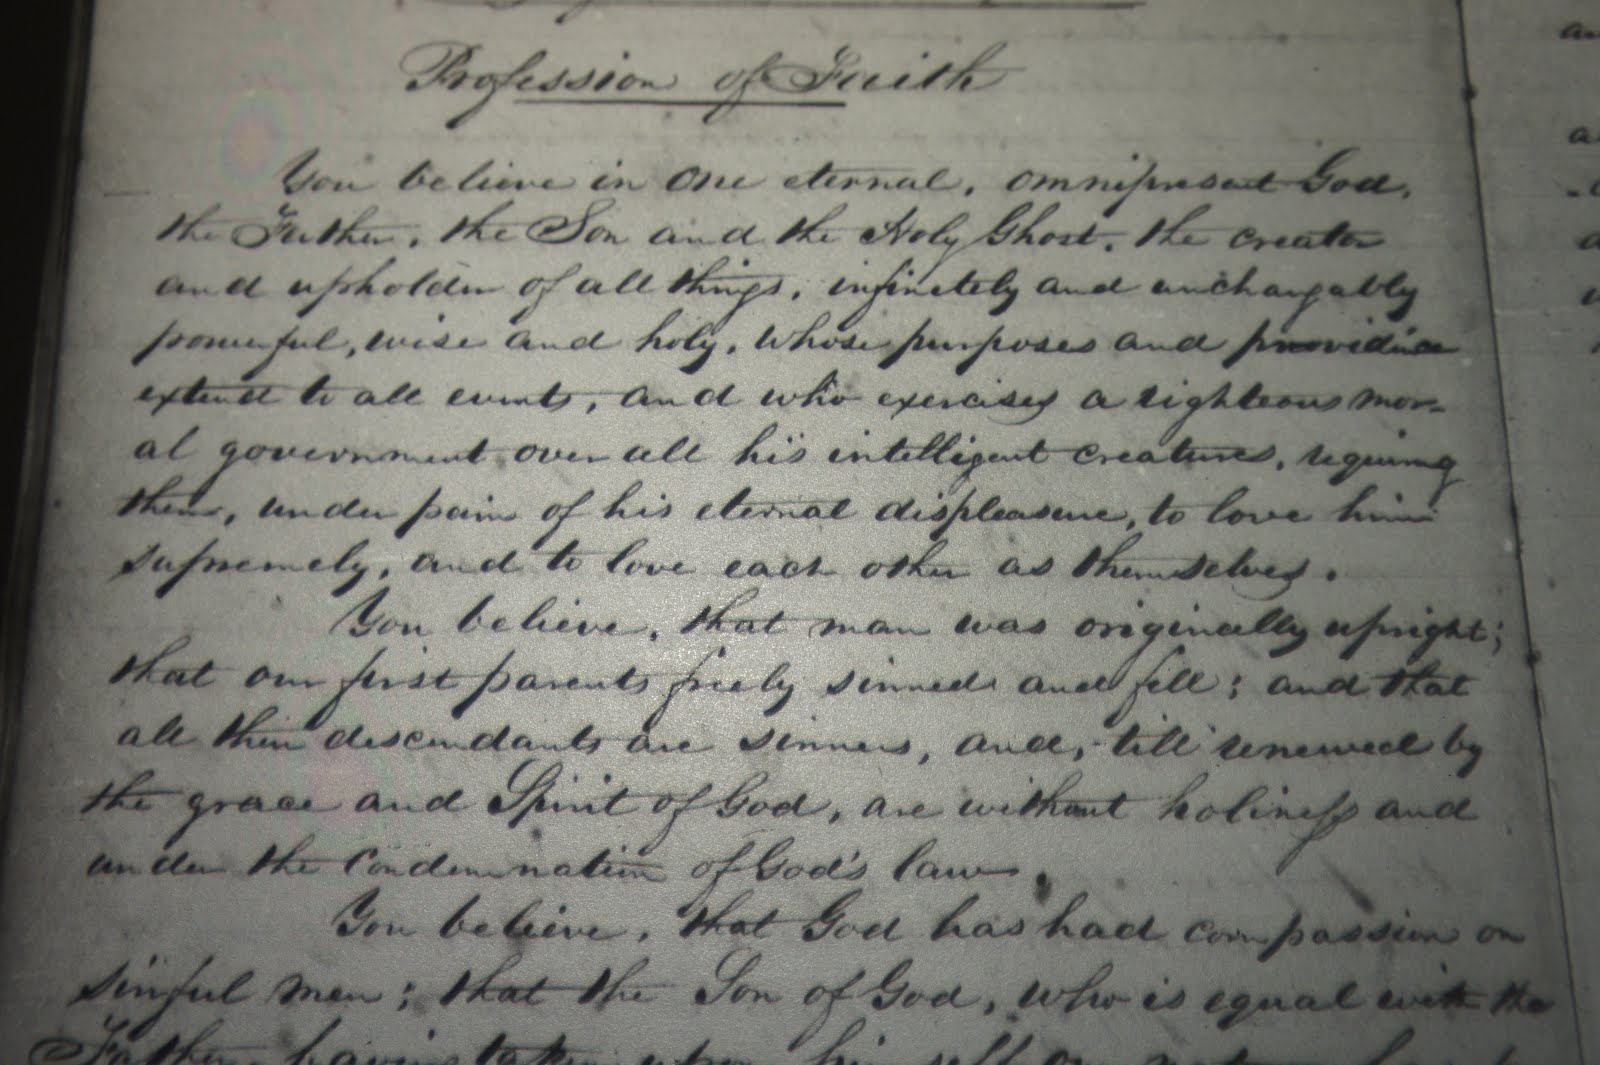 Profession of Faith
You believe in one eternal, omnipresent God,
the Father, the Son and the Holy Ghost, the creator
and upholder of all things, infinitely and unchangably
powerful, wise and holy, whose purposes and providence
extend to all events, and who exercises a righteous mor-
al government over all his intelligent creatures, requiring
them, under pain of his eternal displeasure, to love him
supremely, and to love each other as themselves.
You believe, that man was originally upright;
that our first parents freely sinned and fell; and that
all their descendants are sinners, and, till renewed by
the grace and Spirit of God, are without holiness and
under the condemnation of God's law.
You believe, that God has had compassion on
sinful men; that the Son of God, who is equal with the
Father, having taken upon himself our